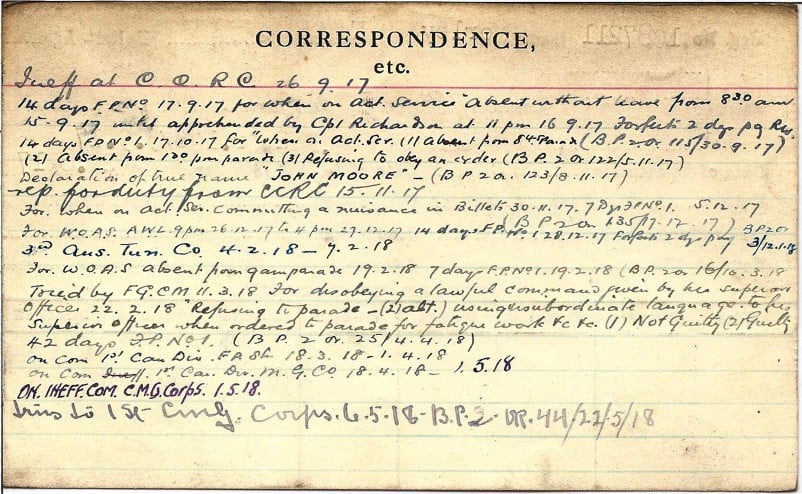 CORRESPONDENCE,
etc.
Ineff at C.O.R.C 26 9.17
14 days F.P. No 17.9.17 for when on Act. Service "Absent without leave from 8 30 am
15-9.17 until apprehended by Cpl Richardson at 11 pm 16 9.17 Forfeits 2 dys pay
14 days FP No 1. 17.10.17 for "when on Act. Ser. (1) Absent from Parade (B.P. 2 or 115/30.9.17)
(2) Absent from parade (3) Refusing to obey an order (B P. 2 or 122/5.11.17)
Declaration of true name "JOHN MOORE" - (B P 2 or. 123/8.11.17)
rep. for duty from CCRC 15.11.17
For. when on Act. Ser. Committing a nuisance in Billets 30.11.17. 7 Dys F.P. No 1. 5.12.17
(B P 2 or 135/17.12.17)
For. W.O.A.S. A.W.L. 9 pm 26.12.17 to 4 pm 27.12.17 14 days F.P. No 1 28.12.17 Forfeits 2 dys pay B P 2 or 3/12.1.18
3rd Aus. Tun. Co. 4.2.18 - 9.2.18
For. W.O.A.S Absent from 9 am parade 19.2.18 7 days F.P. No 1. 19.2.18 (B.P. 2 or 16/10.3.18
Tried by F.G.C.M 11.3.18 For disobeying a lawful command given by his superior
Officer 22.2.18 "Refusing to parade - (2) alt.) using insubordinate language to his
Superior Officer when ordered to parade for fatigue work &c &c. (1) Not Guilty (2) Guilty
42 days F.P. No 1. (B.P. 2 or. 25/4.4.18)
on Com 1st Can Div. 18.3.18 - 1.4.18
on Com Ineff. 1st Can. Div. M.G. Co 18.4.18 - 1.5.18
ON. INEFF. COM. C.M.G. Corps. 1.5.18.
trns to 1st C.M.G. Corps. 6.5.18 - B.P. 2. OR. 44/22/5/18